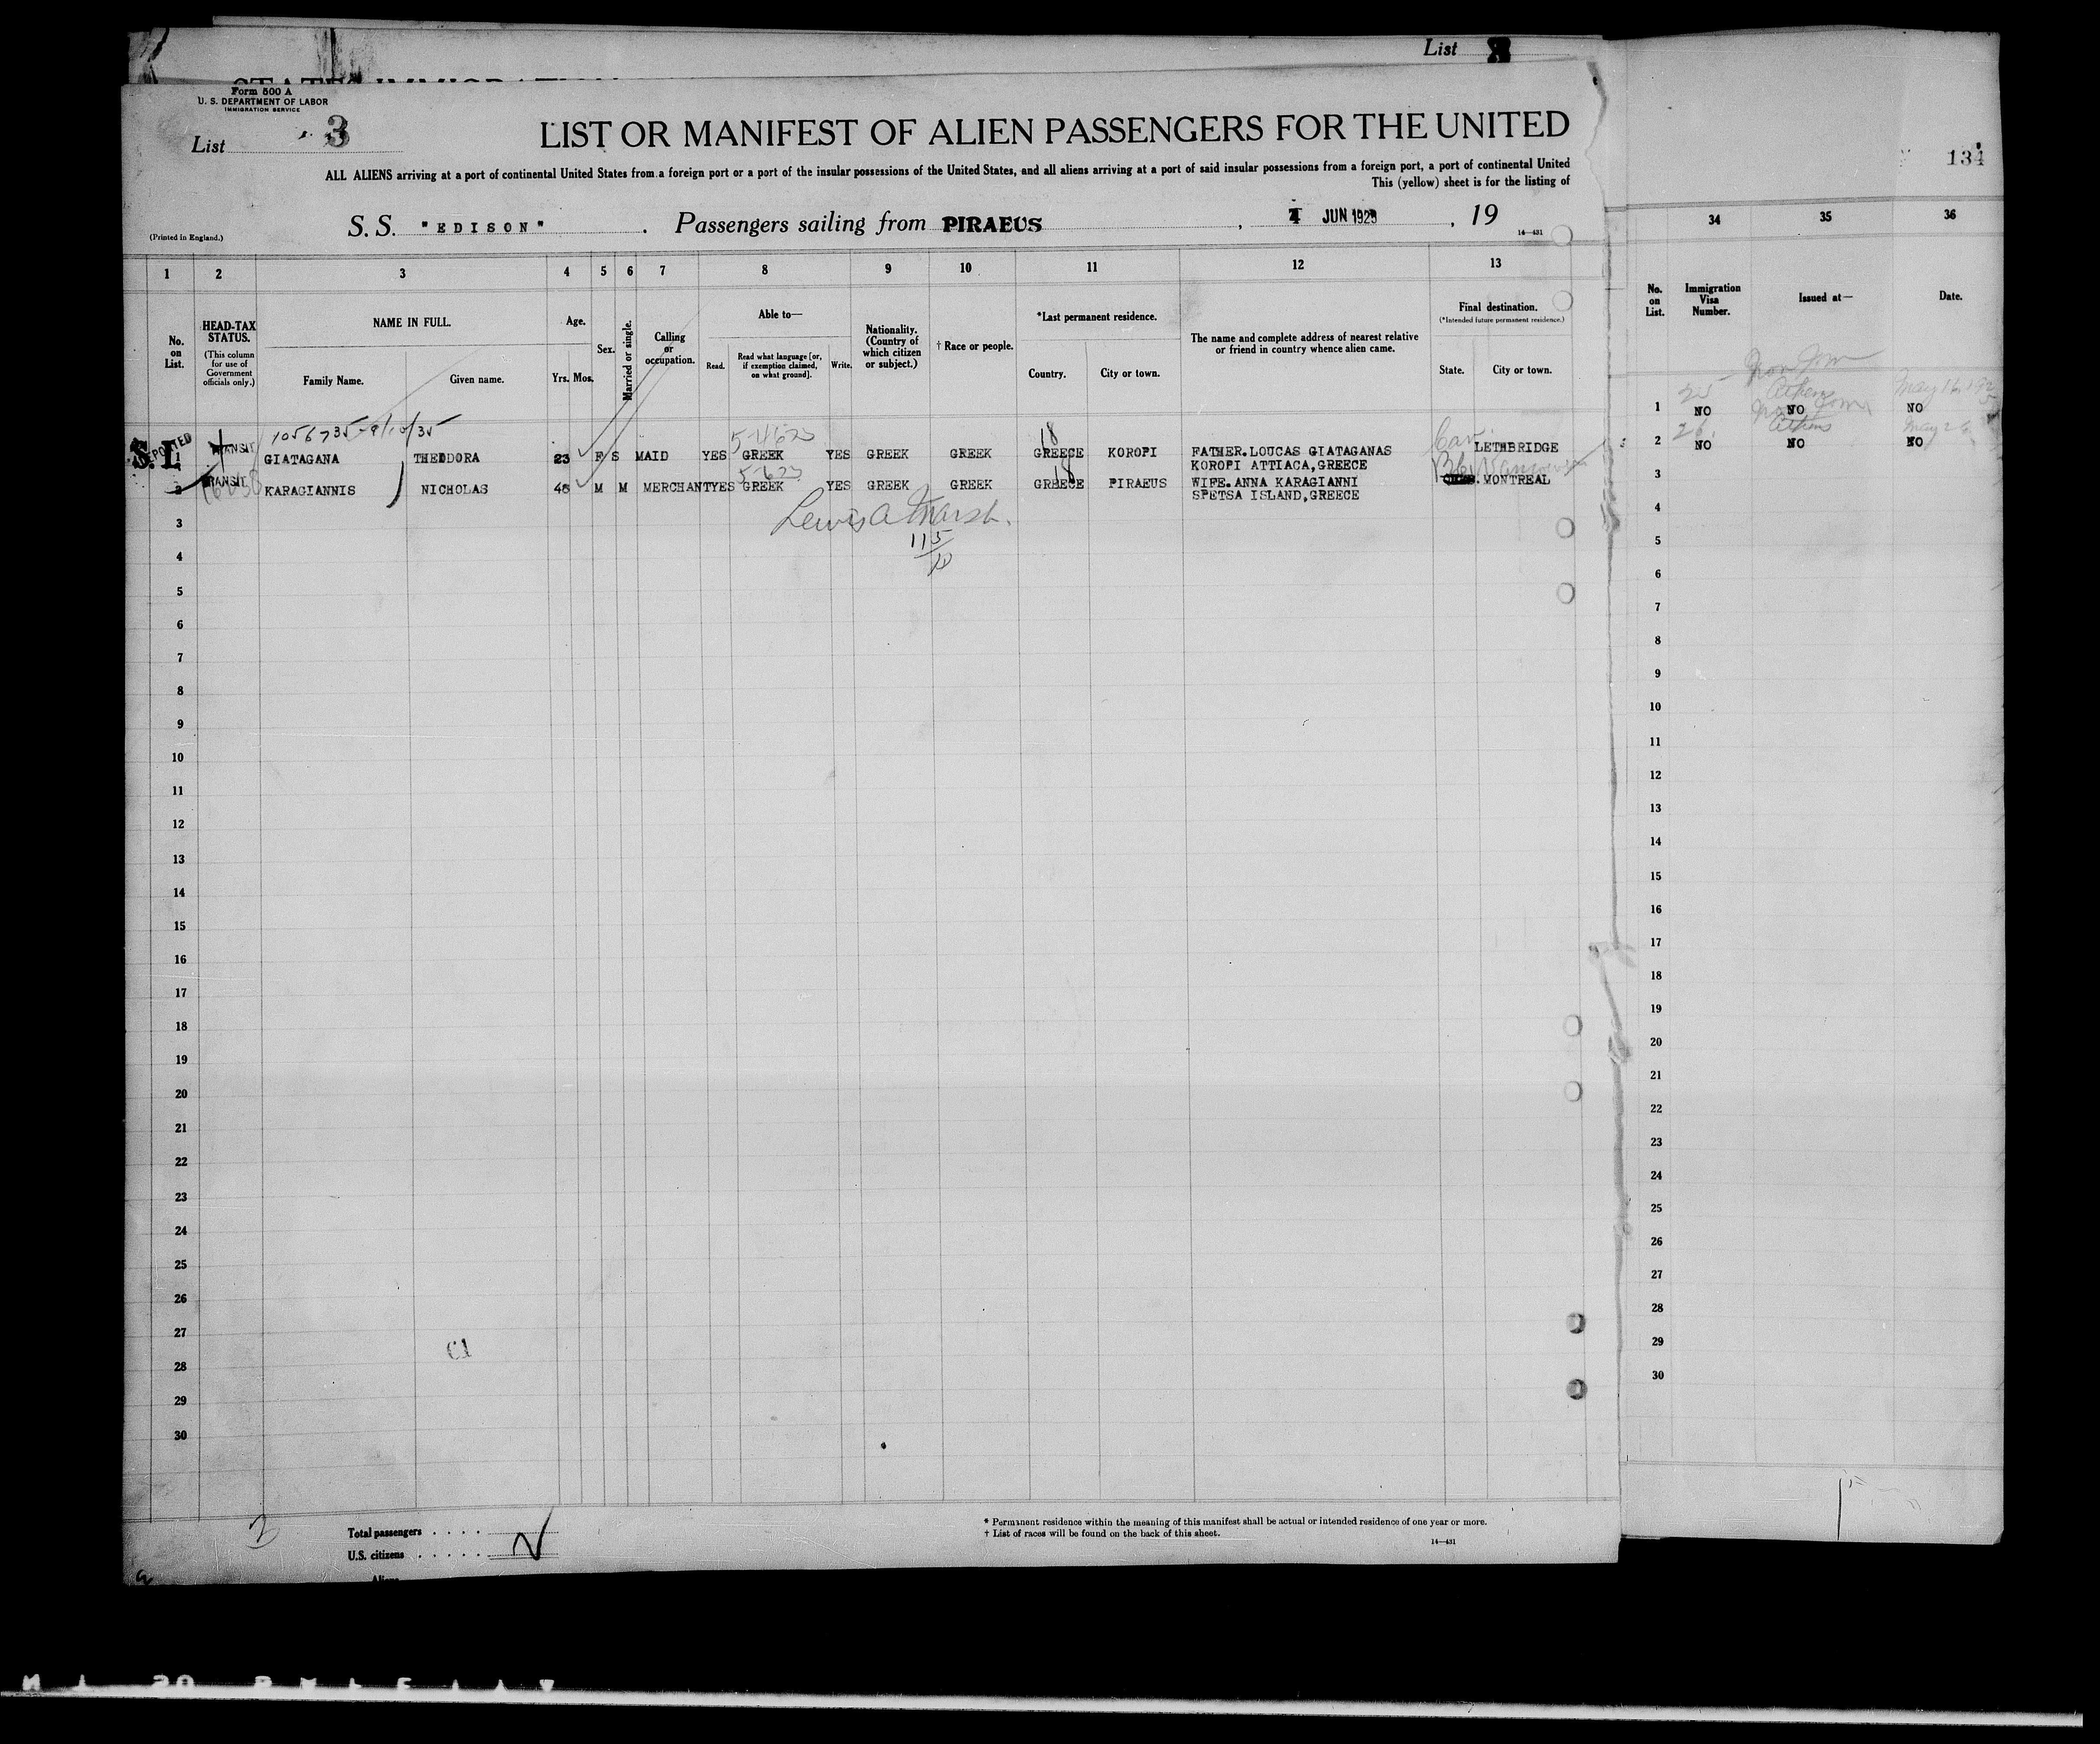 List
Form 500 A
U. S. DEPARTMENT OF LABOR
IMMIGRATION SERVICE
List 3
LIST OR MANIFEST OF ALIEN PASSENGERS FOR THE UNITED
134
ALL ALIENS arriving at a port of continental United States from a foreign port or a port of the insular possessions of the United States, and all aliens arriving at a port of said insular possessions from a foreign port, a port of continental United
This (yellow) sheet is for the listing of
S. S. "EDISON". Passengers sailing from PIRAEUS, JUN 1923, 19
(Printed in England.)
14—431
1 2 3 4 5 6 7 8 9 10 11 12 13
34 35 36
No. on List.
HEAD-TAX STATUS.
(This column for use of Government officials only.)
NAME IN FULL.
Family Name.
Given name.
Age.
Yrs. Mos.
Sex.
Married or single.
Calling or occupation.
Able to—
Read.
Read what language [or, if exemption claimed, on what ground].
Write.
Nationality. (Country of which citizen or subject.)
† Race or people.
*Last permanent residence.
Country.
City or town.
The name and complete address of nearest relative or friend in country whence alien came.
Final destination.
(*Intended future permanent residence.)
State.
City or town.
No. on List.
Immigration Visa Number.
Issued at—
Date.
1056735-9/10/35
S.I. 1 TRANSIT GIATAGANA THEODORA 23 F S MAID YES GREEK YES GREEK GREEK GREECE KOROPI FATHER.LOUCAS GIATAGANAS LETHBRIDGE
KOROPI ATTIACA,GREECE
2 TRANSIT KARAGIANNIS NICHOLAS 48 M M MERCHANT YES GREEK YES GREEK GREEK GREECE PIRAEUS WIFE.ANNA KARAGIANNI MONTREAL
SPETSA ISLAND,GREECE
Lewis A Marsh.
115
3
4
5
6
7
8
9
10
11
12
13
14
15
16
17
18
19
20
21
22
23
24
25
26
27
28
29
30
25 Athens May 16, 192
1 NO NO NO
26. Athens May 26
2 NO NO NO
3
4
5
6
7
8
9
10
11
12
13
14
15
16
17
18
19
20
21
22
23
24
25
26
27
28
29
30
Total passengers . . . .
U.S. citizens . . . . .
Aliens
* Permanent residence within the meaning of this manifest shall be actual or intended residence of one year or more.
† List of races will be found on the back of this sheet.
14—431